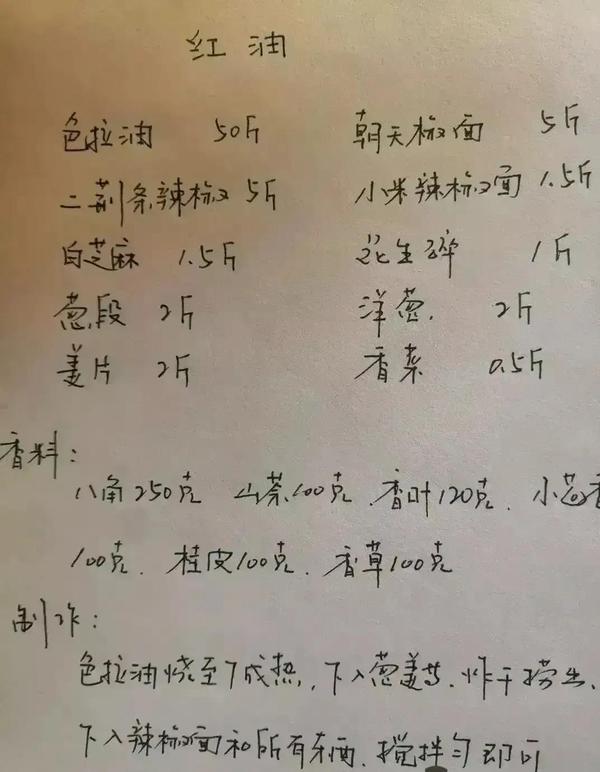 红油
色拉油 50斤 朝天椒面 5斤
二荆条辣椒 5斤 小米辣椒面 1.5斤
白芝麻 1.5斤 花生碎 1斤
葱段 2斤 洋葱. 2斤
姜片 2斤 香菜 0.5斤
香料:
八角250克 山奈100克.香叶120克.小茴香
100克.桂皮100克.香草100克
制作:
色拉油烧至7成热.下入葱姜等.炸干捞出.
下入辣椒面和所有东西.搅拌匀即可